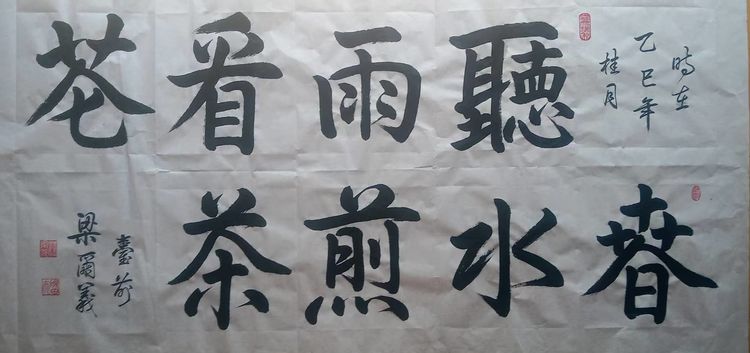 時在
乙巳年
桂月
聽雨看花
春水煎茶
臺前
梁爾義